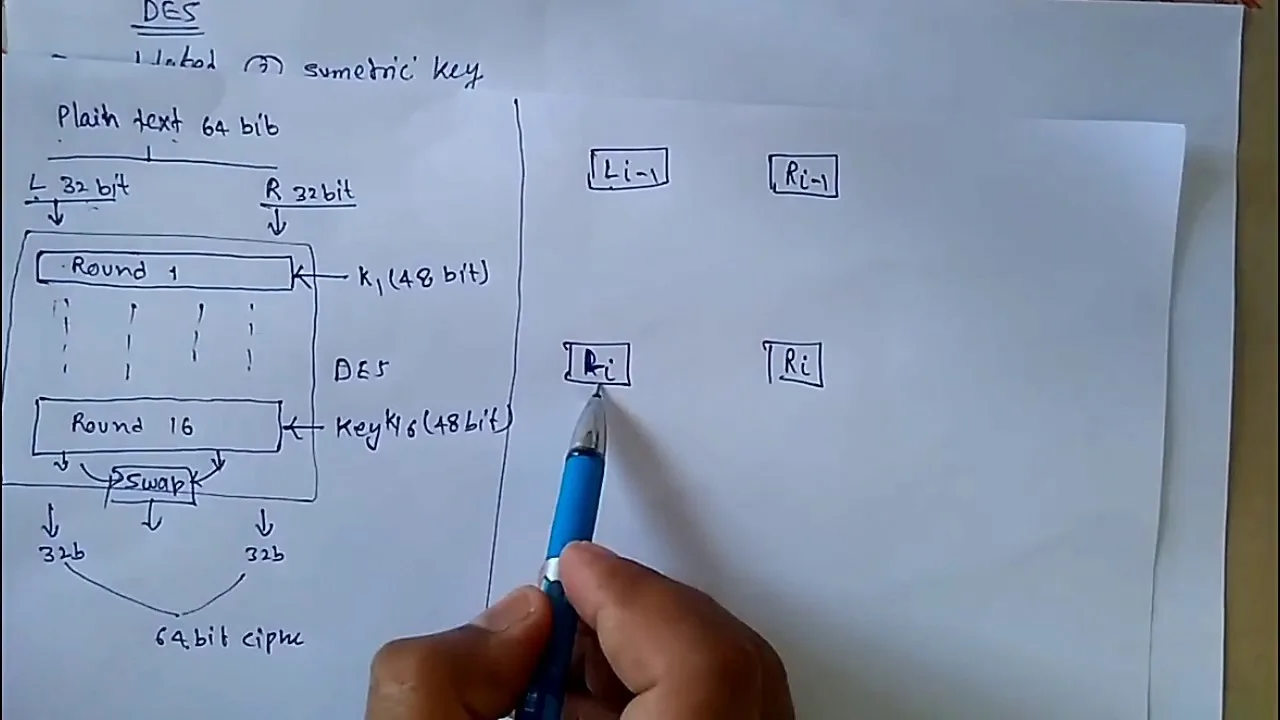 DES
sumetric key
Plain text 64 bib
L 32 bit
R 32bit
Round 1
K1 (48 bit)
DES
Round 16
Key K16 (48 bit)
Swap
32b
32b
64 bit ciphe
Li-1
Ri-1
Ri
Ri